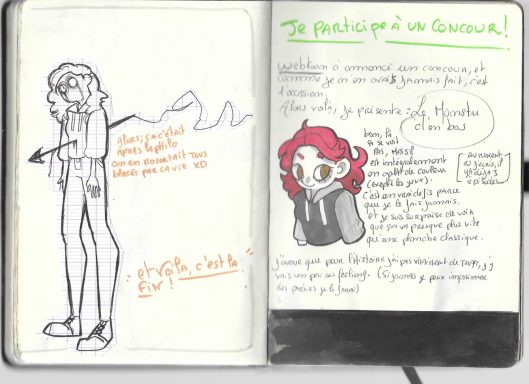 Alors, ça c'était
après la philo
on en ressortait tous
blasés par la vie XD
et voilà, c'est la
fin !
Je participe à un concour !
webtoon a annoncé un concour, et
comme je n'en avais jamais fait, c'est
l'occasion.
Alors voilà, je présente : Le Monstre
d'en bas
bon, là
ça se voit
pas, mais
est intégralement
en couleur
(les yeux).
c'est un vrai défis parce
que je le fais jamais,
et je suis surprise de voir
que ça va presque plus vite
qu'une planche classique.
j'avoue que pour l'histoire j'ai pas vraiment de , j'y
vais un peu au feeling. (Si jamais je peux imprimer
des je le ferai)